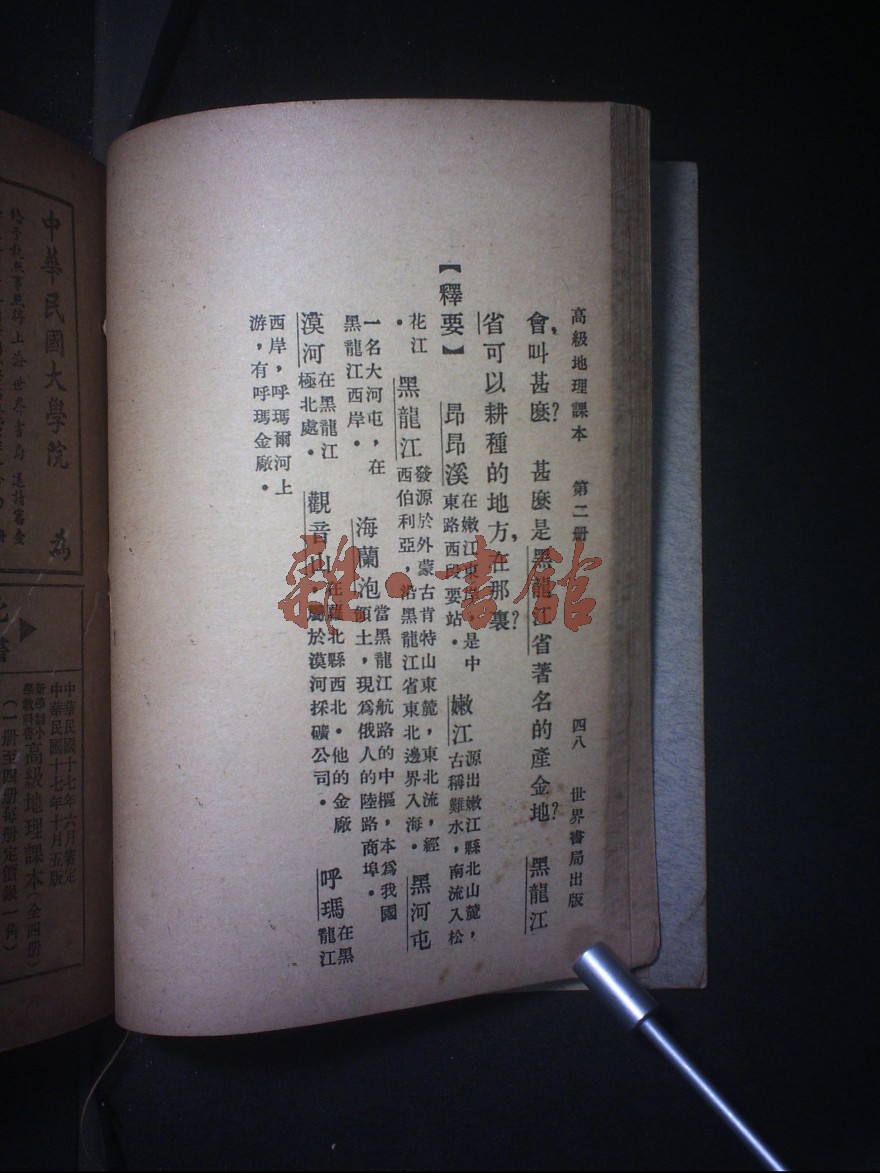 高級地理課本 第二册 四八 世界書局出版
會,叫甚麽? 甚麽是黑龍江省著名的產金地? 黑龍江
省可以耕種的地方,在那裏?
【釋要】 昂昂溪 在嫩江東岸,是中東路西段要站。 嫩江 源出嫩江縣北山麓,古稱難水,南流入松
花江。 黑龍江 發源於外蒙古肯特山東麓,東北流,經西伯利亞,沿黑龍江省東北邊界入海。 黑河屯
一名大河屯,在黑龍江西岸。 海蘭泡 當黑龍江航路的中樞,本爲我國領土,現爲俄人的陸路商埠。
漠河 在黑龍江極北處。 觀音山 在蘿北縣西北。他的金廠,屬於漠河採礦公司。 呼瑪 在黑龍江
西岸,呼瑪爾河上游,有呼瑪金廠。
雜·書館
中華民國大學院 爲
給予執照事照得上海世界書局呈請審查
中華民國十七年六月審定
中華民國十七年十月五版
新學制小學教科書 高級地理課本(全四册)
(一册至四册每册定價銀一角)